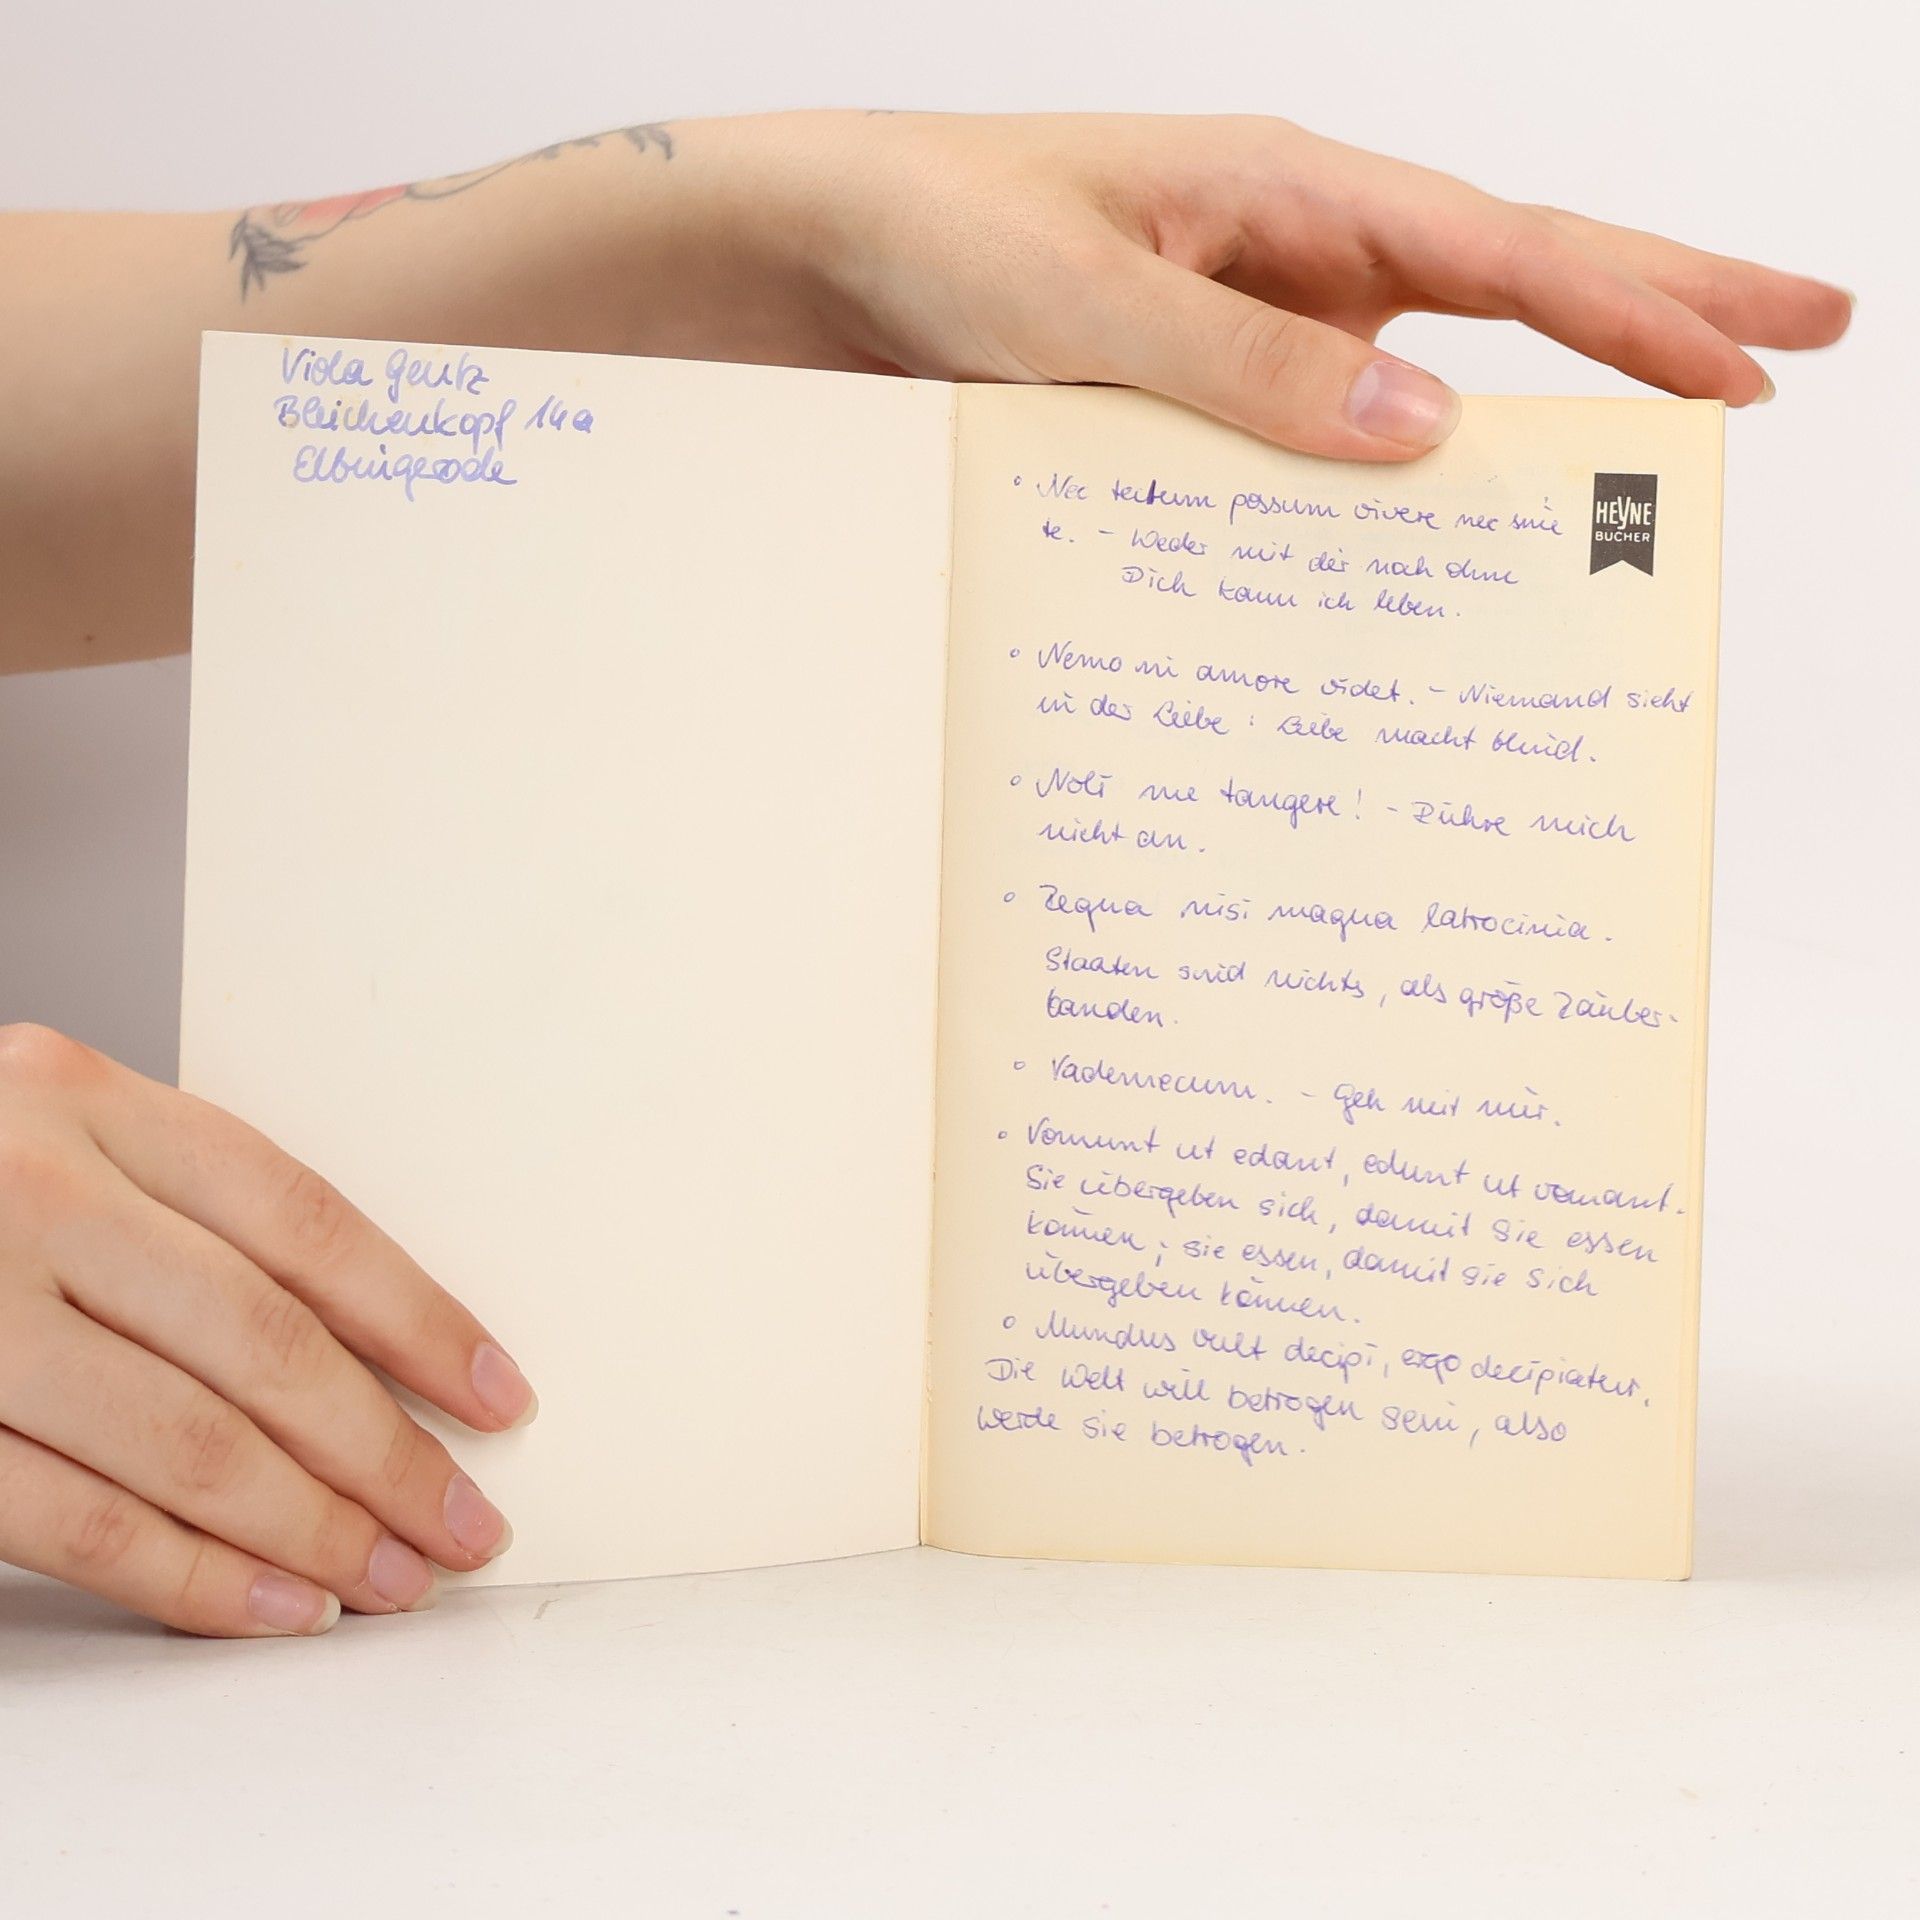 Viola Gentz
Bleichenkopf 14a
Elbingerode
HEYNE
BÜCHER
° Nec tectum possum vivere nec sine
te. - Weder mit dir noch ohne
Dich kann ich leben.
° Nemo in amore videt. - Niemand sieht
in der Liebe : Liebe macht blind.
° Noli me tangere! - Rühre mich
nicht an.
° Regna nisi magna latrocinia.
Staaten sind nichts, als große Räuber-
banden.
° Vademecum. - Geh mit mir.
° Vomunt ut edant, edunt ut vomant.
Sie übergeben sich, damit sie essen
können; sie essen, damit sie sich
übergeben können.
° Mundus vult decipi, ergo decipiatur.
Die Welt will betrogen sein, also
werde sie betrogen.